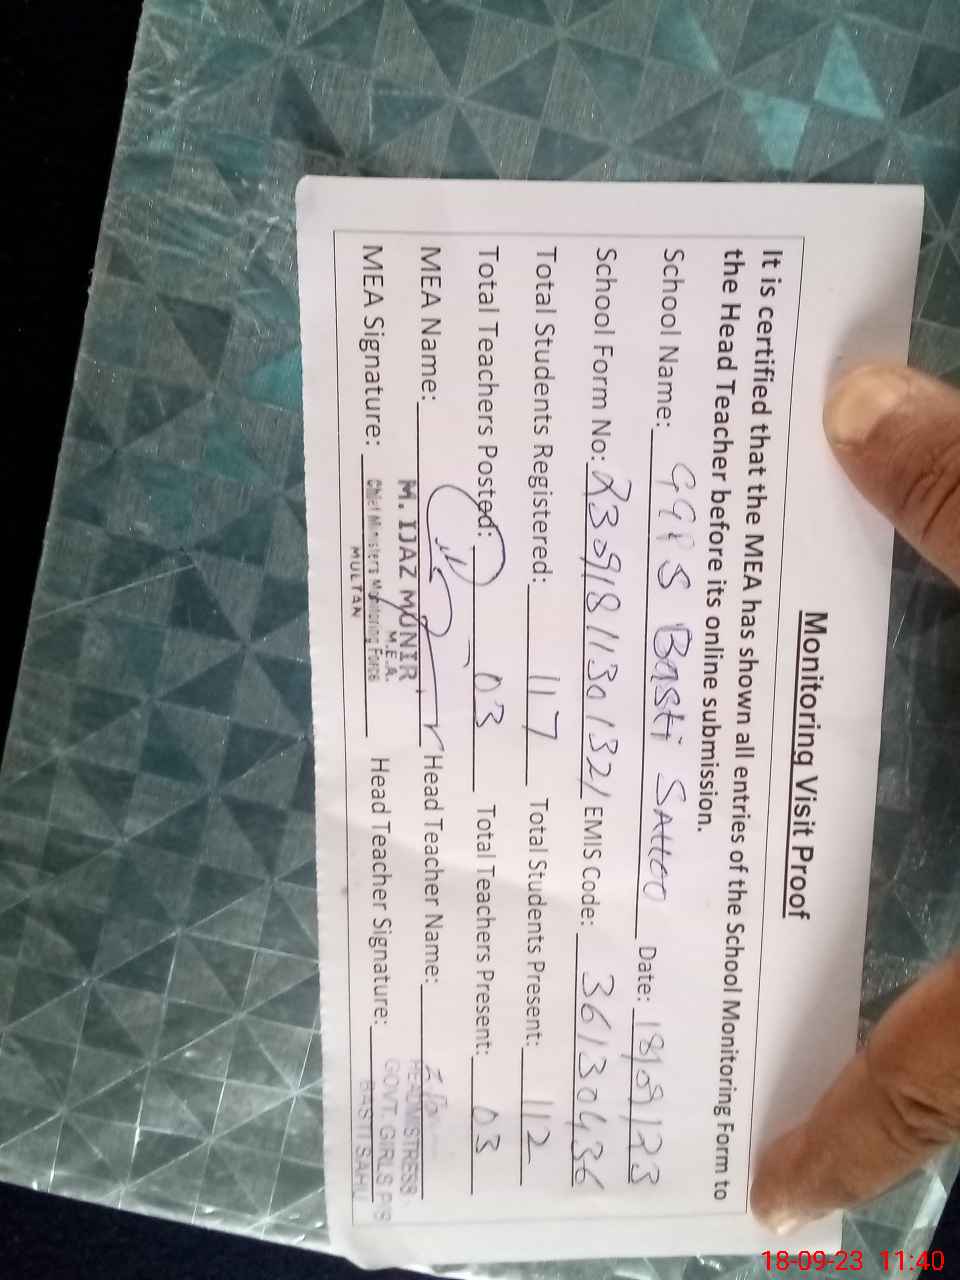 Monitoring Visit Proof
It is certified that the MEA has shown all entries of the School Monitoring Form to
the Head Teacher before its online submission.
School Name: GGPS Basti SAHOO Date: 18/09/23
School Form No: EMIS Code: 36130436
Total Students Registered: 117 Total Students Present: 112
Total Teachers Posted: 03 Total Teachers Present: 03
MEA Name: Head Teacher Name:
M. IJAZ MUNIR
M.E.A.
HEADMISTRESS
MEA Signature: Chief Ministers Monitoring Force Head Teacher Signature: GOVT. GIRLS P/S
MULTAN
BASTI SAHU
18-09-23 11:40